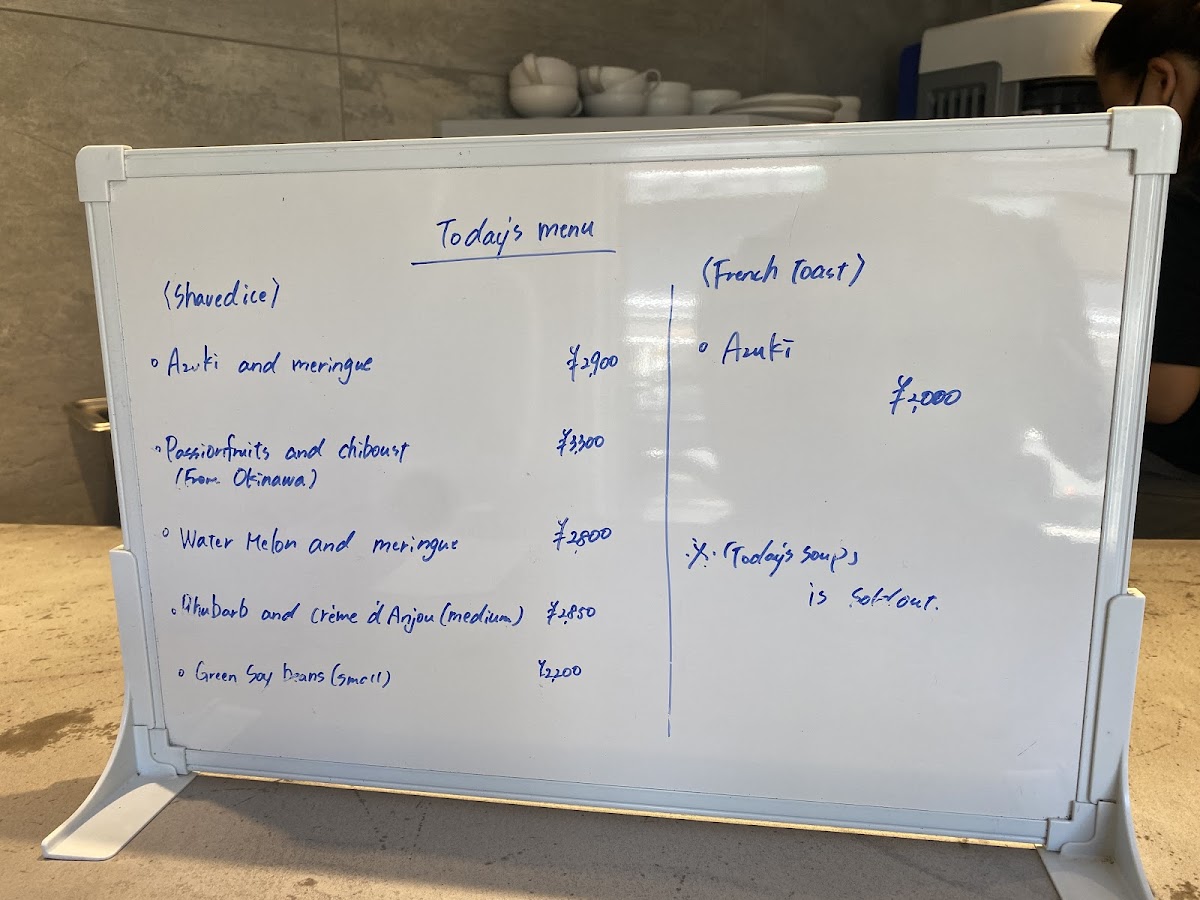 Today's menu
(Shaved ice)
○ Azuki and meringue ¥2,900
○ Passionfruits and chiboust ¥3,300
(From Okinawa)
○ Water Melon and meringue ¥2,800
○ Rhubarb and Crème d'Anjou (medium) ¥2,850
○ Green Soy beans (small) ¥2,200
(French Toast)
○ Azuki
¥2,000
※「Today's soup」
is sold out.